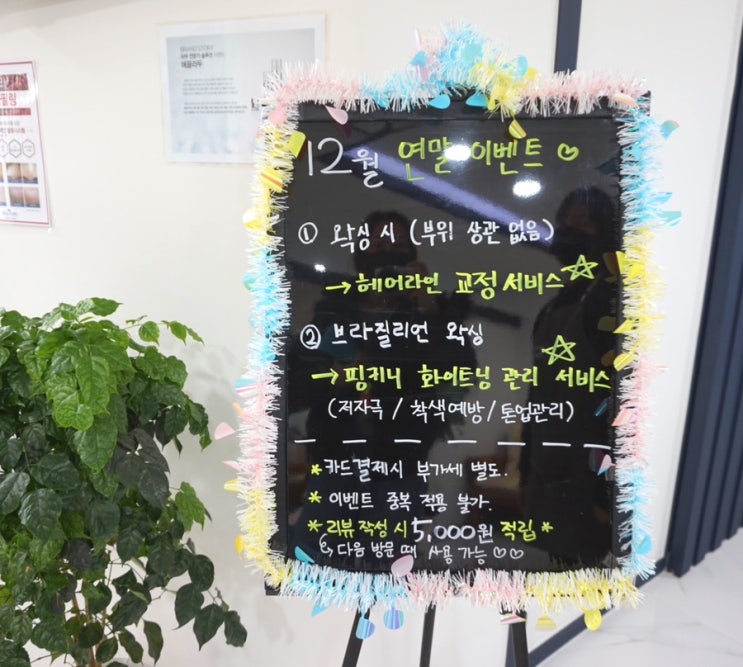 BRAND STORY
필링
12월 연말 이벤트 ♡
① 왁싱 시 (부위 상관 없음)
→ 헤어라인 교정 서비스 ☆
② 브라질리언 왁싱
→ 핑키니 화이트닝 관리 서비스 ☆
(저자극 / 착색예방 / 톤업관리)
* 카드결제시 부가세 별도.
* 이벤트 중복 적용 불가.
* 리뷰 작성 시 5,000원 적립 *
다음 방문 때 사용 가능 ♡♡